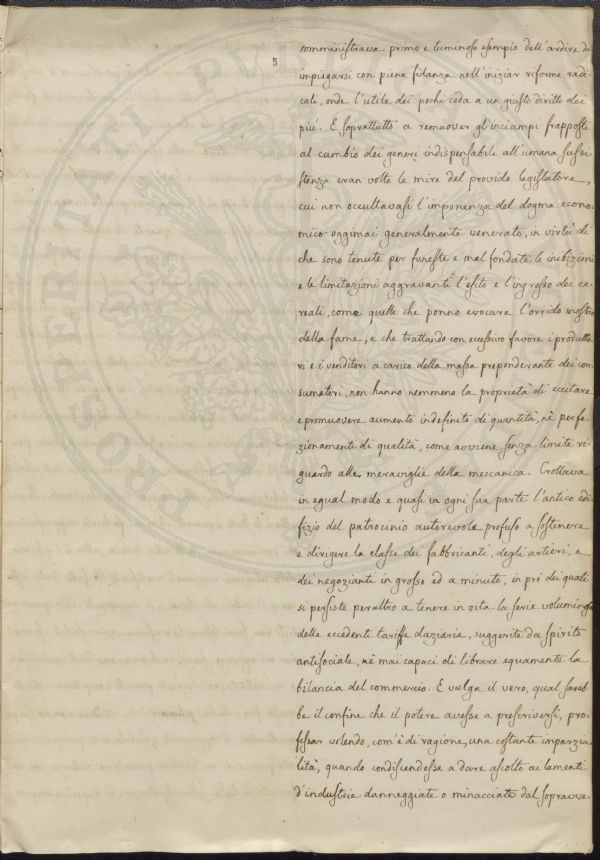 5
somministrava primo e luminoso esempio dell'ardire da
impiegarsi con piena fidanza nell'iniziar riforme radi-
cali, onde l'utile dei pochi ceda a un giusto diritto dei
più. E soprattutto a remuover gl'inciampi frapposti
al cambio dei generi indispensabili all'umana sussi
stenza eran volte le mire del provido legislatore,
cui non occultavasi l'imponenza del dogma econo-
mico oggimai generalmente venerato, in virtù di
che sono tenute per funeste e mal fondate le inibizioni
e le limitazioni aggravanti l'esito e l'ingresso dei ce-
reali, come quelle che ponno evocare l'orrido mostro
della fame, e che trattando con eccessivo favore i produtto-
ri e i venditori a carico della massa preponderante dei con-
sumatori, non hanno nemmeno la proprietà di eccitare
e promuovere aumento indefinito di quantità, nè perfe-
zionamenti di qualità, come avviene senza limite ri-
guardo alle meraviglie della meccanica. Crollava
in egual modo e quasi in ogni sua parte l'antico edi-
fizio del patrocinio autorevole profuso a sostenere
e dirigere la classe dei fabbricanti, degli artieri, e
dei negozianti in grosso ed a minuto, in prò dei quali
si persiste peraltro a tenere in vita la serie voluminosa
delle eccedenti tariffe daziarie, suggerite da spirito
antisociale, nè mai capaci di librare equamente la
bilancia del commercio. E valga il vero, qual sareb
be il confine che il potere avesse a prescriversi, pro-
fessar volendo, com'è di ragione, una costante imparzia-
lità, quando condiscendesse a dare ascolto ai lamenti
d'industrie danneggiate o minacciate dal sopravve-